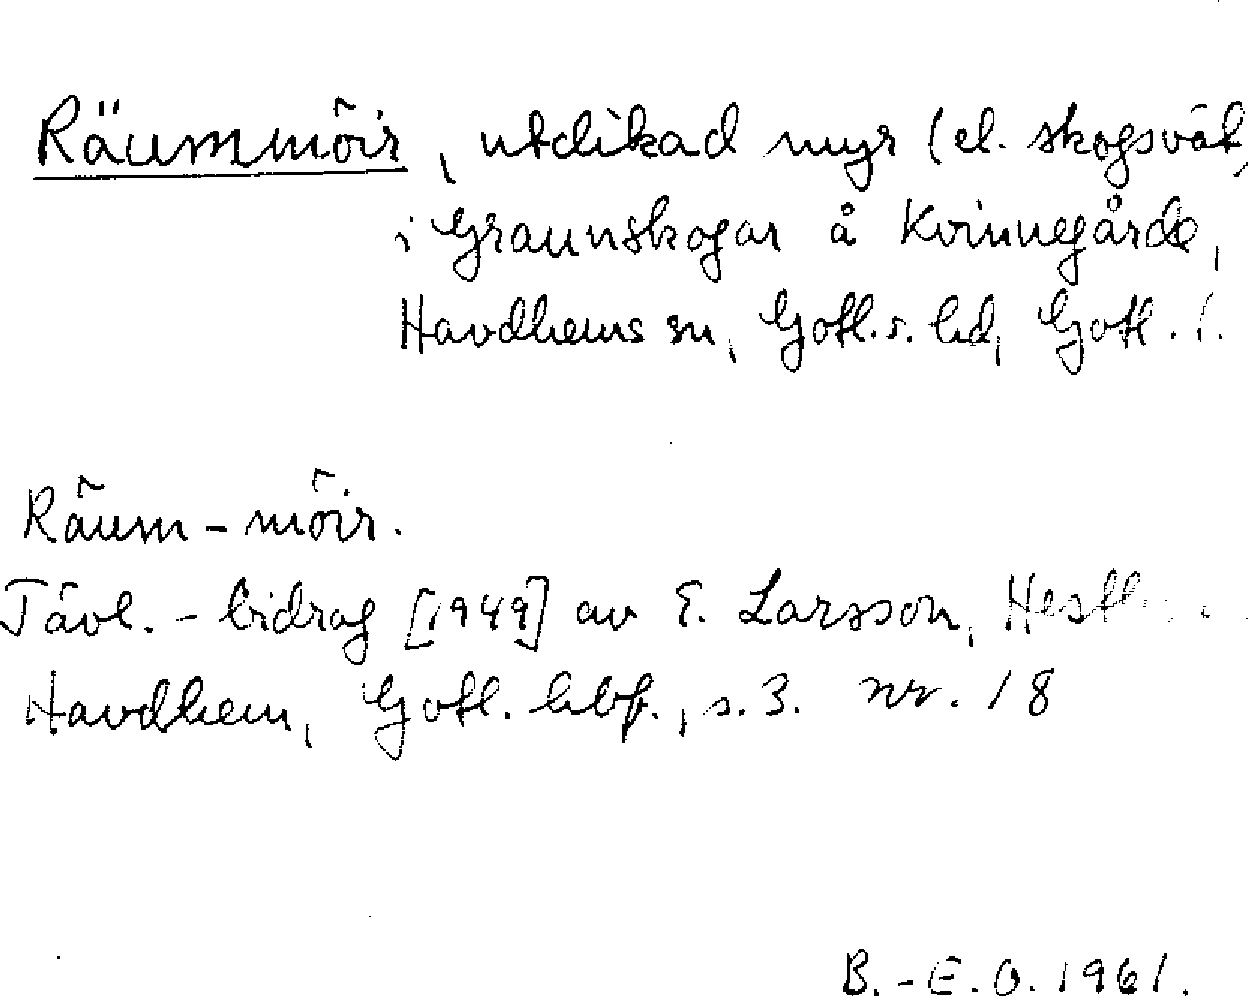 Räummöir, utdikad myr (el. skogsvät,
i Graunskogar å Kvinnegårde,
Havdhems sn, Gotl. s. hd, Gotl. l.
Räum-möir.
Tävl.-bidrag [1949] av E. Larsson,
Havdhem, Gotl. hbf., s. 3. nr. 18
B.-E. O. 1961.